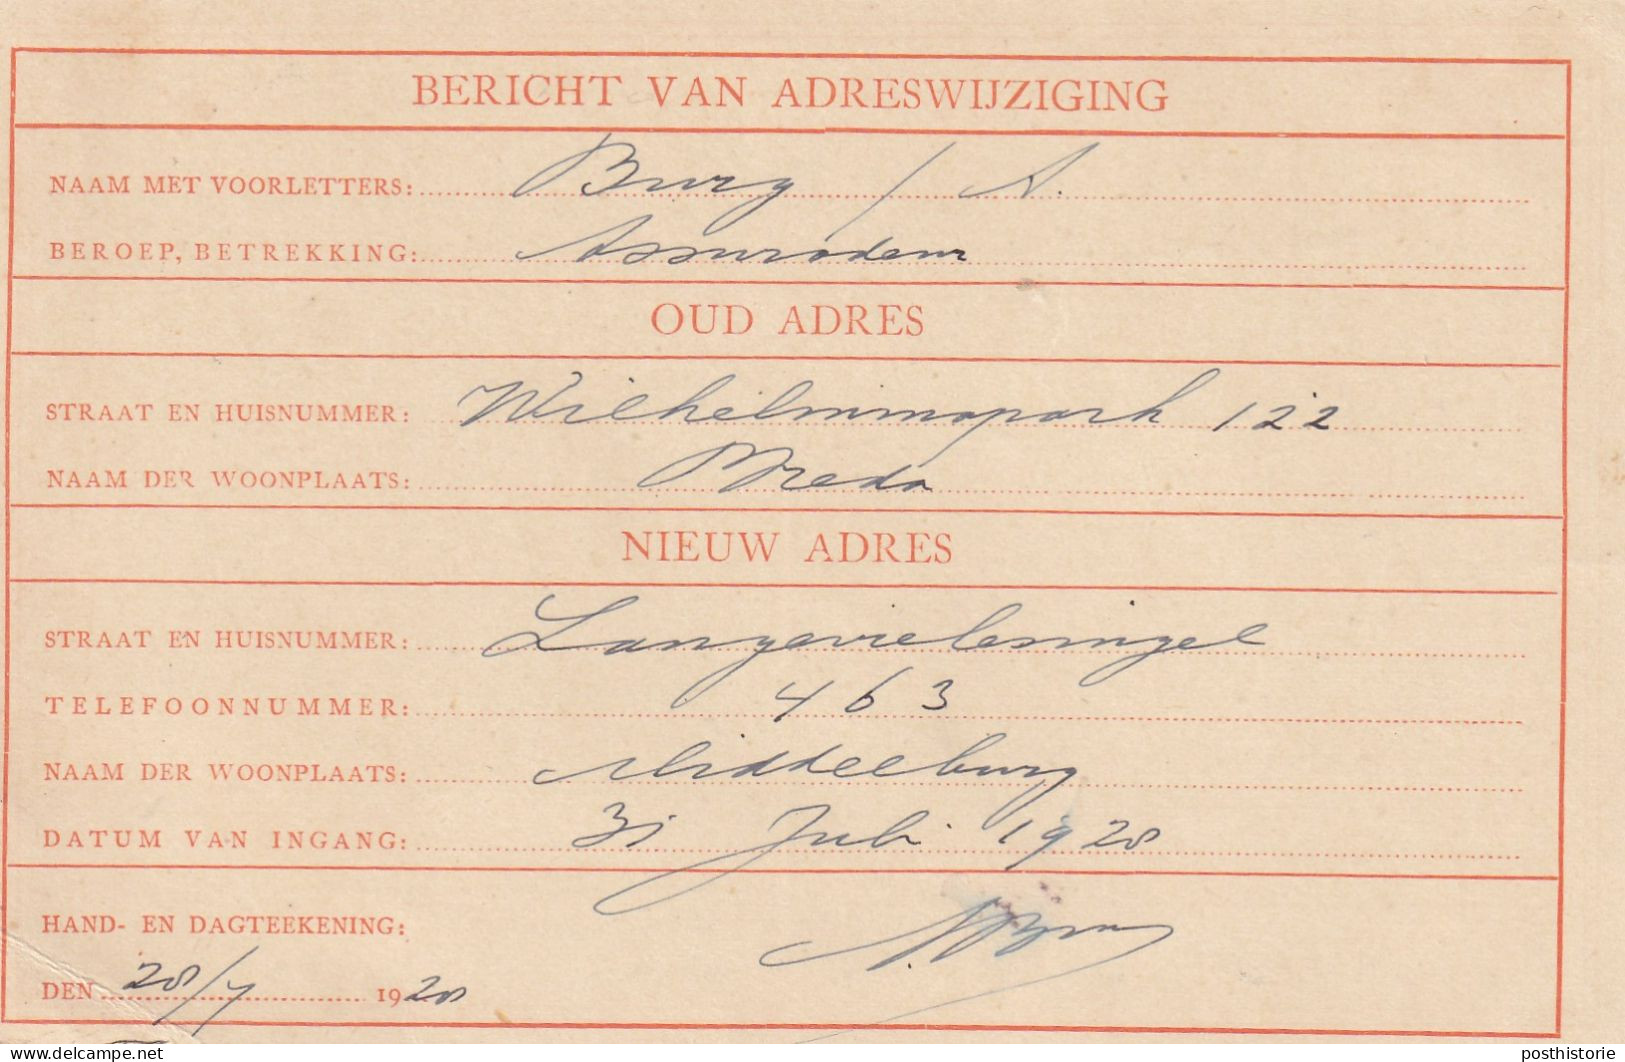 BERICHT VAN ADRESWIJZIGING
NAAM MET VOORLETTERS: Burg / A.
BEROEP, BETREKKING: Assuradeur
OUD ADRES
STRAAT EN HUISNUMMER: Wilhelminapark 122
NAAM DER WOONPLAATS: Breda
NIEUW ADRES
STRAAT EN HUISNUMMER: Langevielesingel
TELEFOONNUMMER: 463
NAAM DER WOONPLAATS: Middelburg
DATUM VAN INGANG: 31 Juli 1928
HAND- EN DAGTEEKENING: A Burg
DEN 28/7 1928
posthistorie
www.delcampe.net